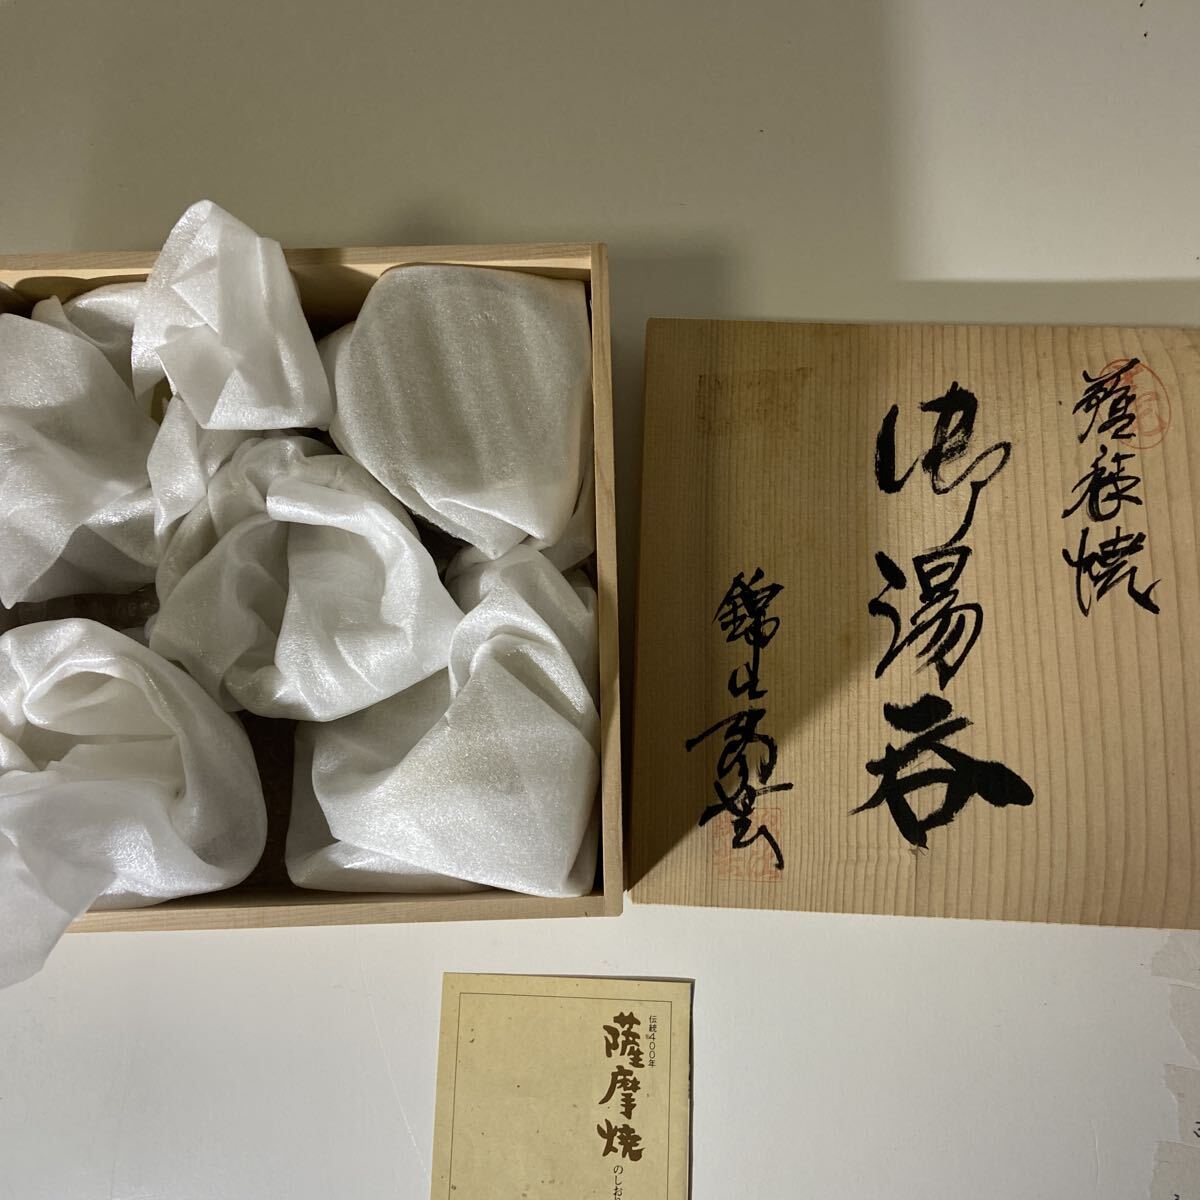 薩摩焼
御湯呑
錦山
伝統400年
薩摩焼
のしおり